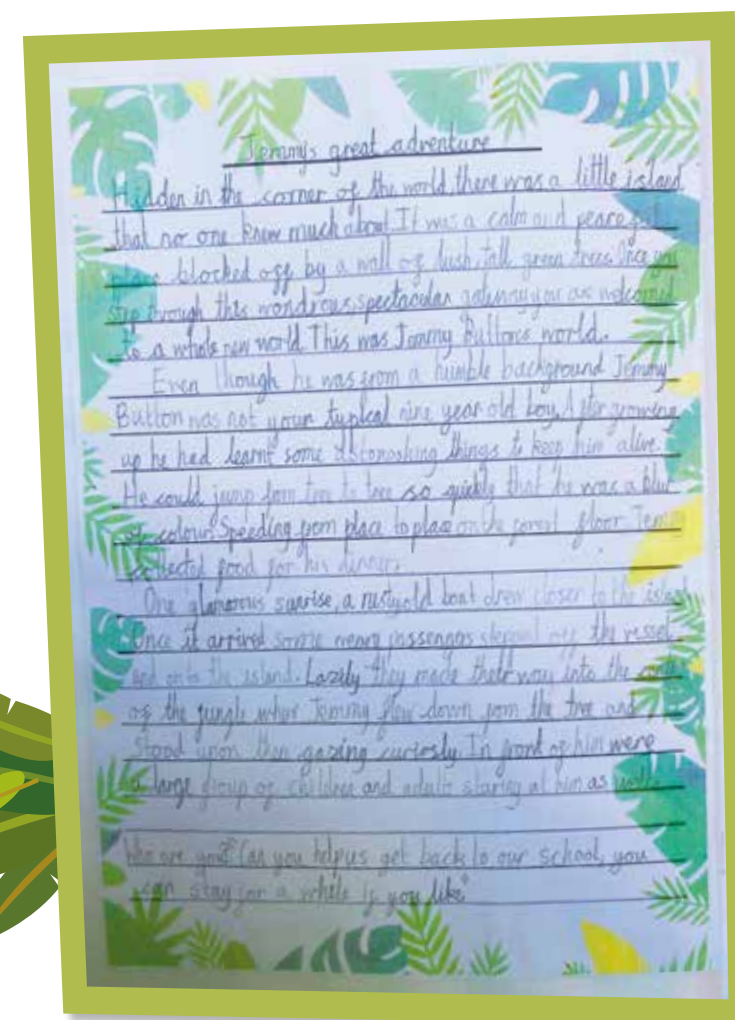 Jemmy's great adventure
Hidden in the corner of the world there was a little island
that no one knew much about. It was a calm and peaceful
place blocked off by a wall of lush, tall green trees. Once you
step through this wondrous, spectacular gateway you are welcomed
to a whole new world. This was Jemmy Buttons world.
Even though he was from a humble background Jemmy
Button was not your typical nine year old boy. After growing
up he had learnt some astonoshing things to keep him alive.
He could jump from tree to tree so quickly that he was a blur
of colour. Speeding from place to place on the forest floor Jemmy
collected food for his dinner.
One glamorous sunrise, a rusty old boat drew closer to the island
Once it arrived some weary passengers stepped off the vessel
and onto the island. Lazily they made their way into the
of the jungle when Jemmy flew down from the tree and
stood upon them gazing curiosly. In frond of him were
a large group of children and adults staring at him as well.
Who are you? Can you help us get back to our school, you
can stay for a while if you like"